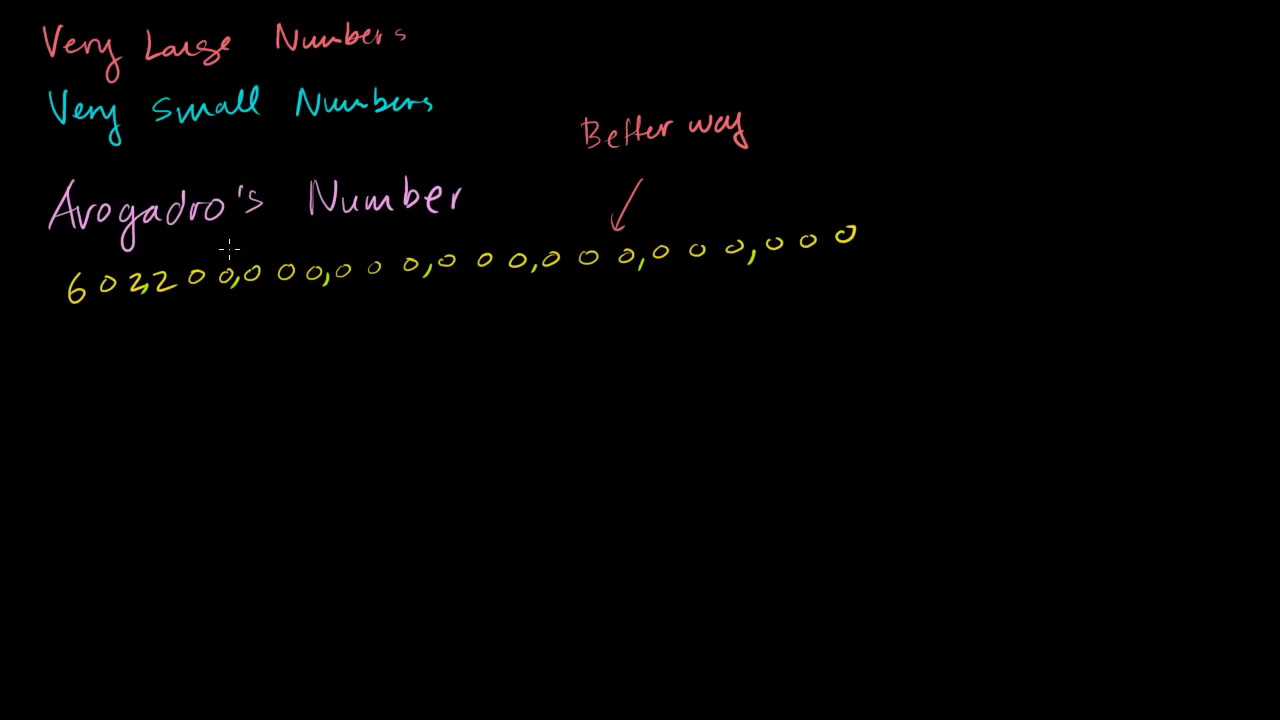 Very Large Numbers
Very Small Numbers
Better way
Avogadro's Number
602,200,000,000,000,000,000,000